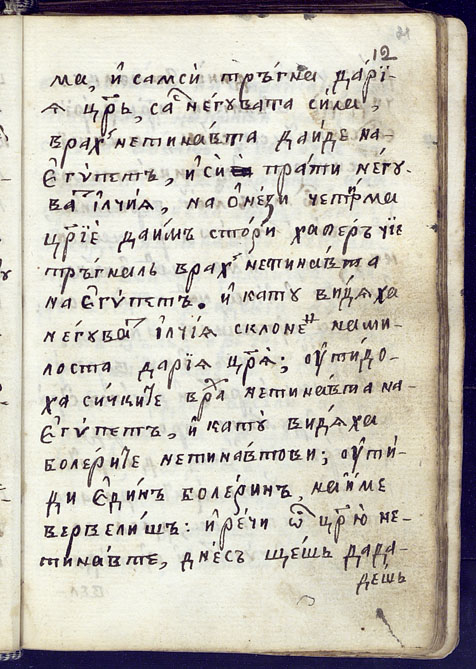 12
ма, и҆ самсѝ тръ́гна да́рї-
ѧ цр҃ь, саⷭ҇ не́гувата сила,
врахꙋ̀ нетина́вта да и҆́де на-
є҆гѵ́петъ, и҆ сѝ пра́ти не́гу-
ваⷮ и҆лчи́ѧ, на ѻ҆не́зи четⷬи́ма
цр҃їѐ да и҆́мъ сто́ри хапе́ръ ч҄їе
тръ́гналь врахꙋ̀ нетина́вта
на є҆гѵ́петъ. и҆ като̀ ви́дѧха
не́гуваⷮ и҆лчи́ѧ склонеⷩ҇ на ми-
лоста да́рїѧ цр҃ѧ̀; ѹ҆тидо́-
ха си́чките вр҃ха нетина́вта на-
є҆гѵ́петъ, и҆ като̀ ви́дѧха
боле́рите нетина́втови; ѹ҆ти́-
ди є҆ди́нъ боле́ринъ, на и҆́ме
вервели́шъ: и҆ ре́чи ѿ цр҃ю̀ не-
тина́вте, дне́съ ще́шъ дада-
дешь